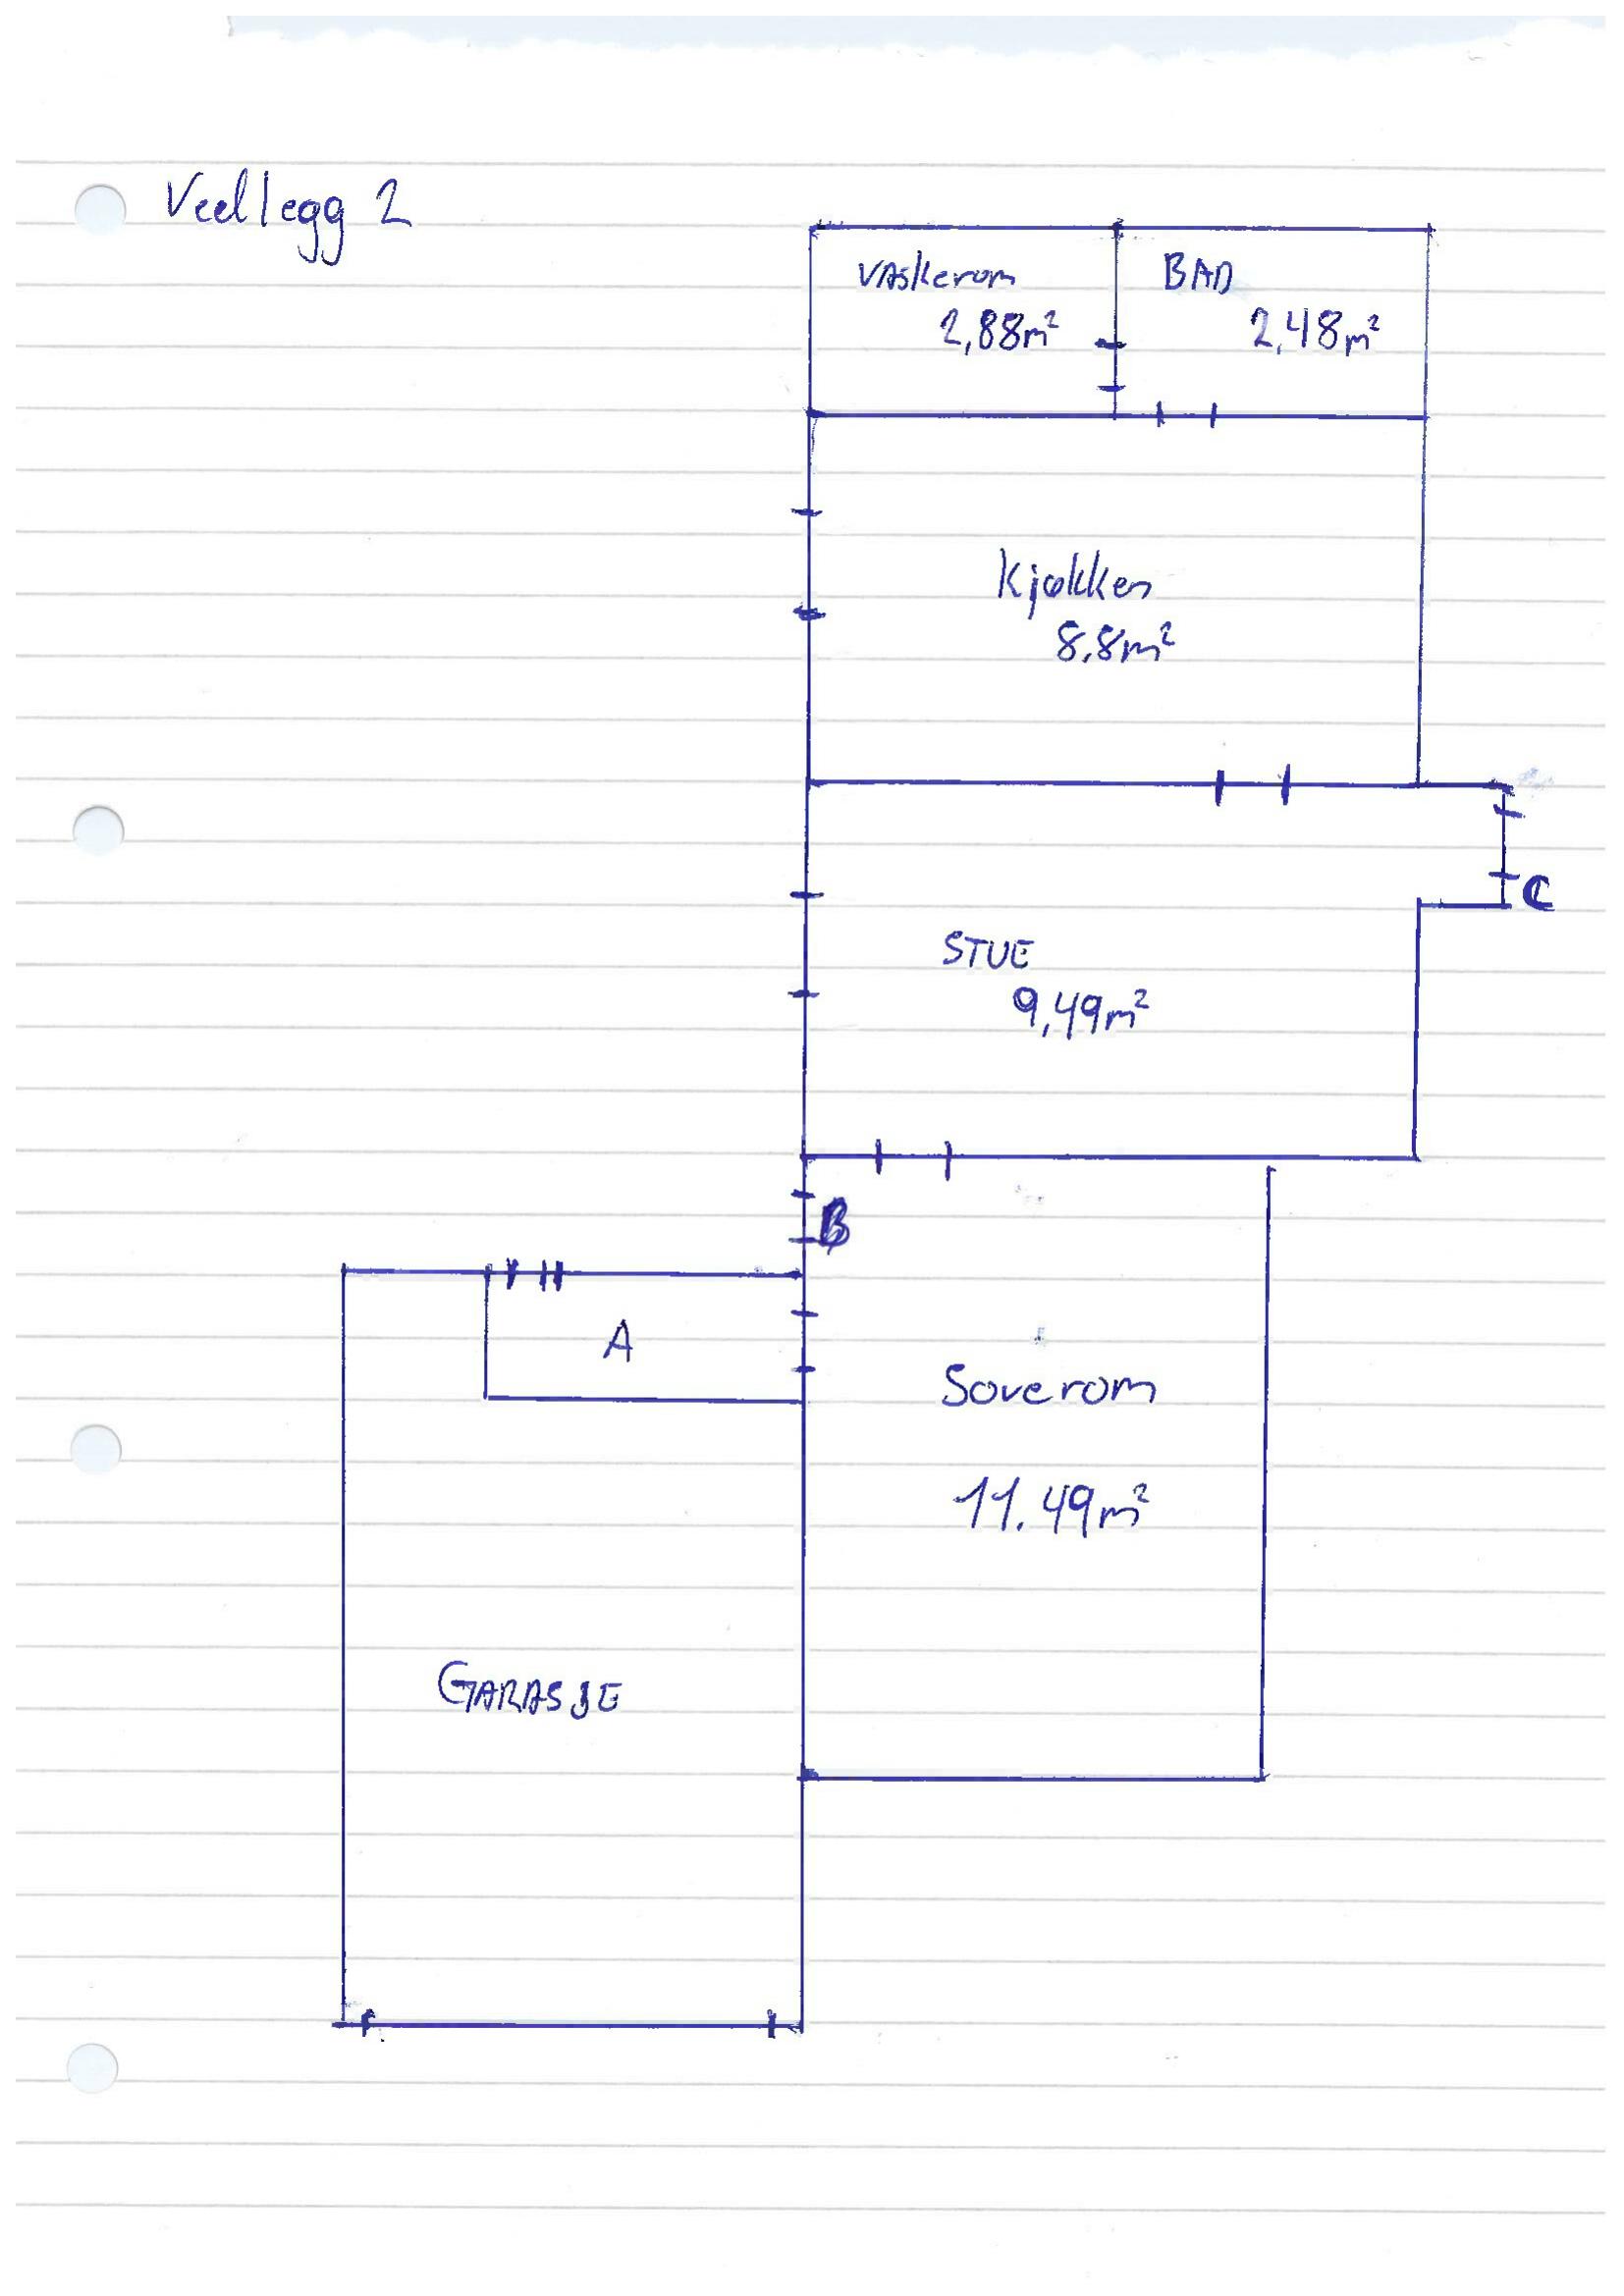 Vedlegg 2
Vaskerom
2,88m²
BAD
2,48m²
Kjøkken
8,8m²
C
STUE
9,49m²
B
A
Soverom
11.49m²
GARASJE